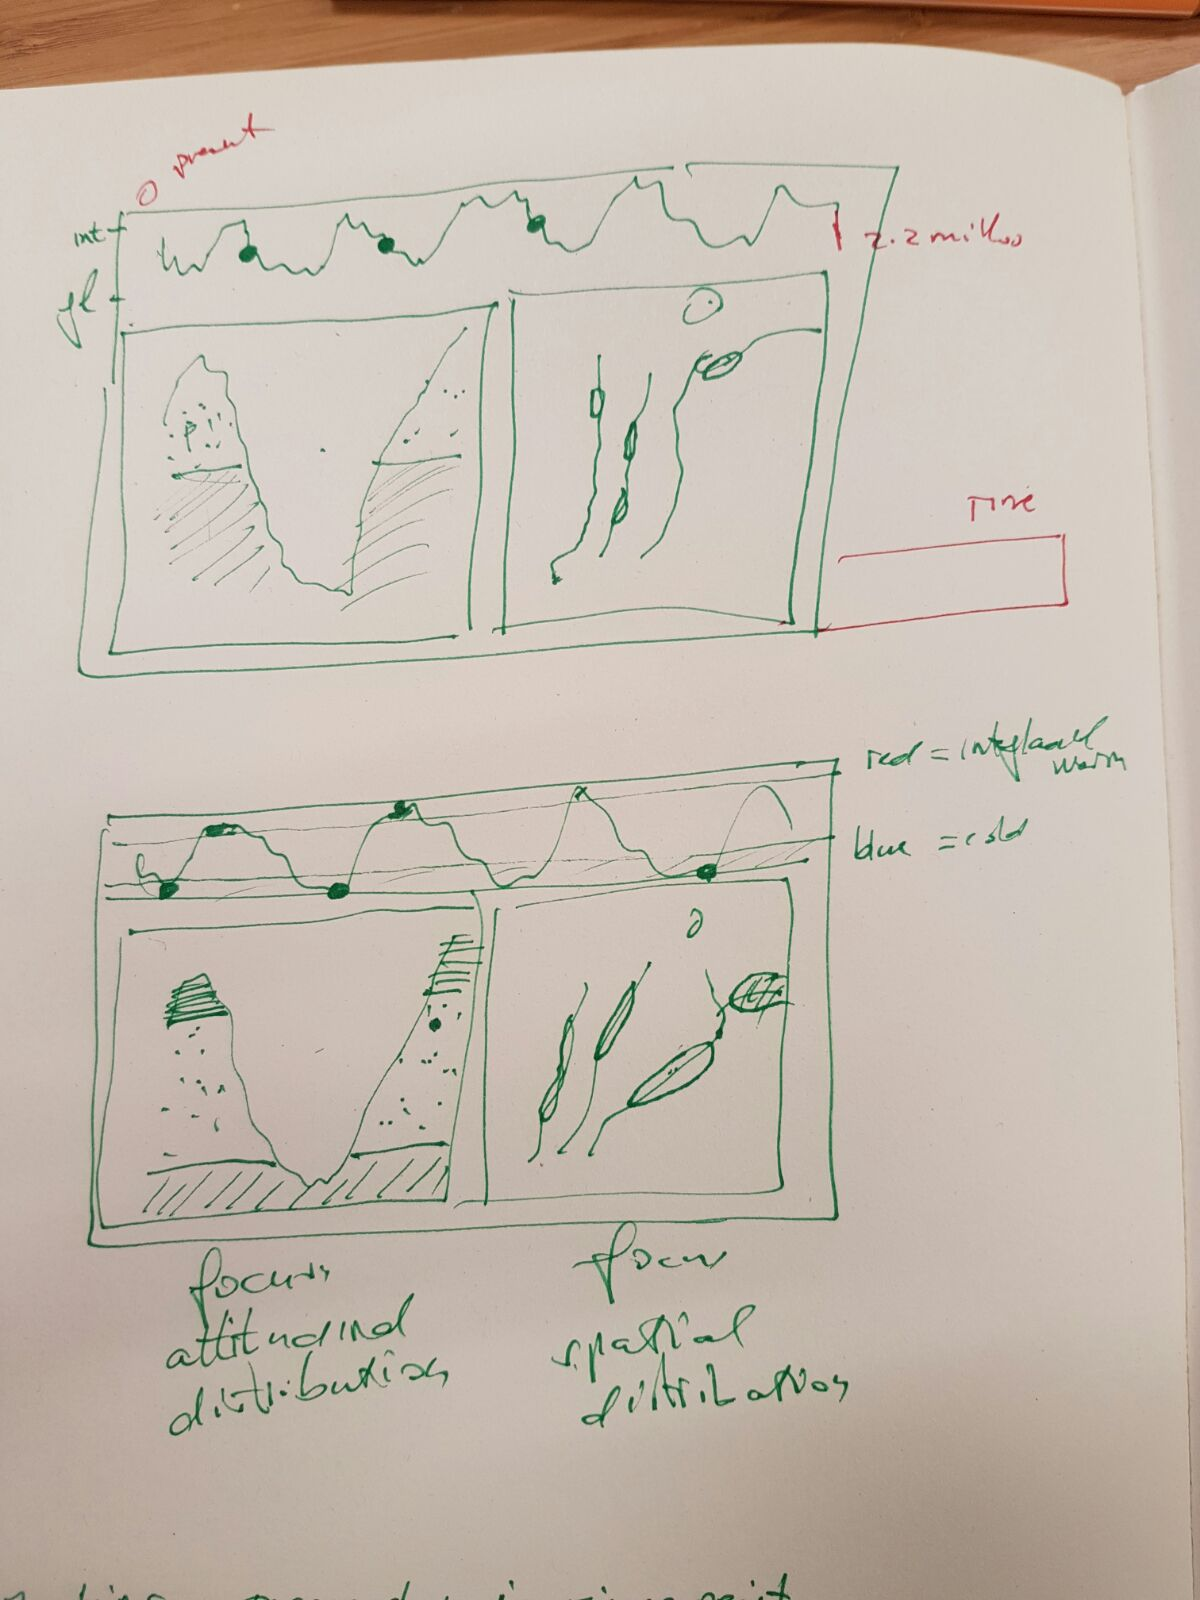 0 present
int
gl
2.2 million
P
Time
red = interglacial
warm
blue = cold
focus
altitudinal
distribution
focus
spatial
distribution